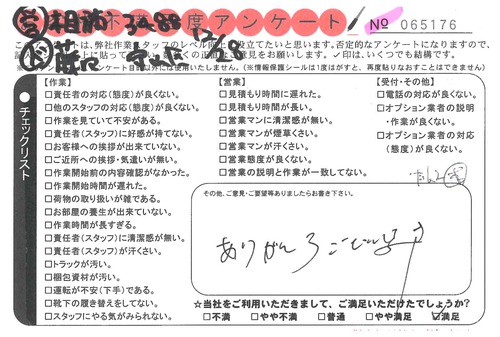 不 度アンケート No 065176
このアンケートは、弊社作業スタッフのレベル向上に役立てたいと思います。否定的なアンケートになりますので、
ご意見をお願いします。✓印は、いくつでも結構です。
(※情報保護シールは1度はがすと、再度貼りなおすことはできません)
チェックリスト
【作業】
□責任者の対応(態度)が良くない。
□他のスタッフの対応(態度)が良くない。
□作業を見ていて不安がある。
□責任者(スタッフ)に好感が持てない。
□お客様への挨拶が出来ていない。
□ご近所への挨拶・気遣いが無い。
□作業開始前の内容確認がなかった。
□作業開始時間が遅れた。
□荷物の取り扱いが雑である。
□お部屋の養生が出来ていない。
□作業時間が長すぎる。
□責任者(スタッフ)に清潔感が無い。
□責任者(スタッフ)が汗くさい。
□トラックが汚い。
□梱包資材が汚い。
□運転が不安(下手)である。
□靴下の履き替えをしてない。
□スタッフにやる気がみられない。
【営業】
□見積もり時間に遅れた。
□見積もり時間が長い。
□営業マンに清潔感が無い。
□営業マンが煙草くさい。
□営業マンが汗くさい。
□営業態度が良くない。
□営業の説明と作業が一致してない。
【受付・その他】
□電話の対応が良くない。
□オプション業者の説明
・作業が良くない。
□オプション業者の対応
(態度)が良くない。
その他、ご意見・ご要望等ありましたらお書き下さい。
ありがとうございます
☆当社をご利用いただきまして、ご満足いただけたでしょうか?
□不満 □やや不満 □普通 □やや満足 ☑満足